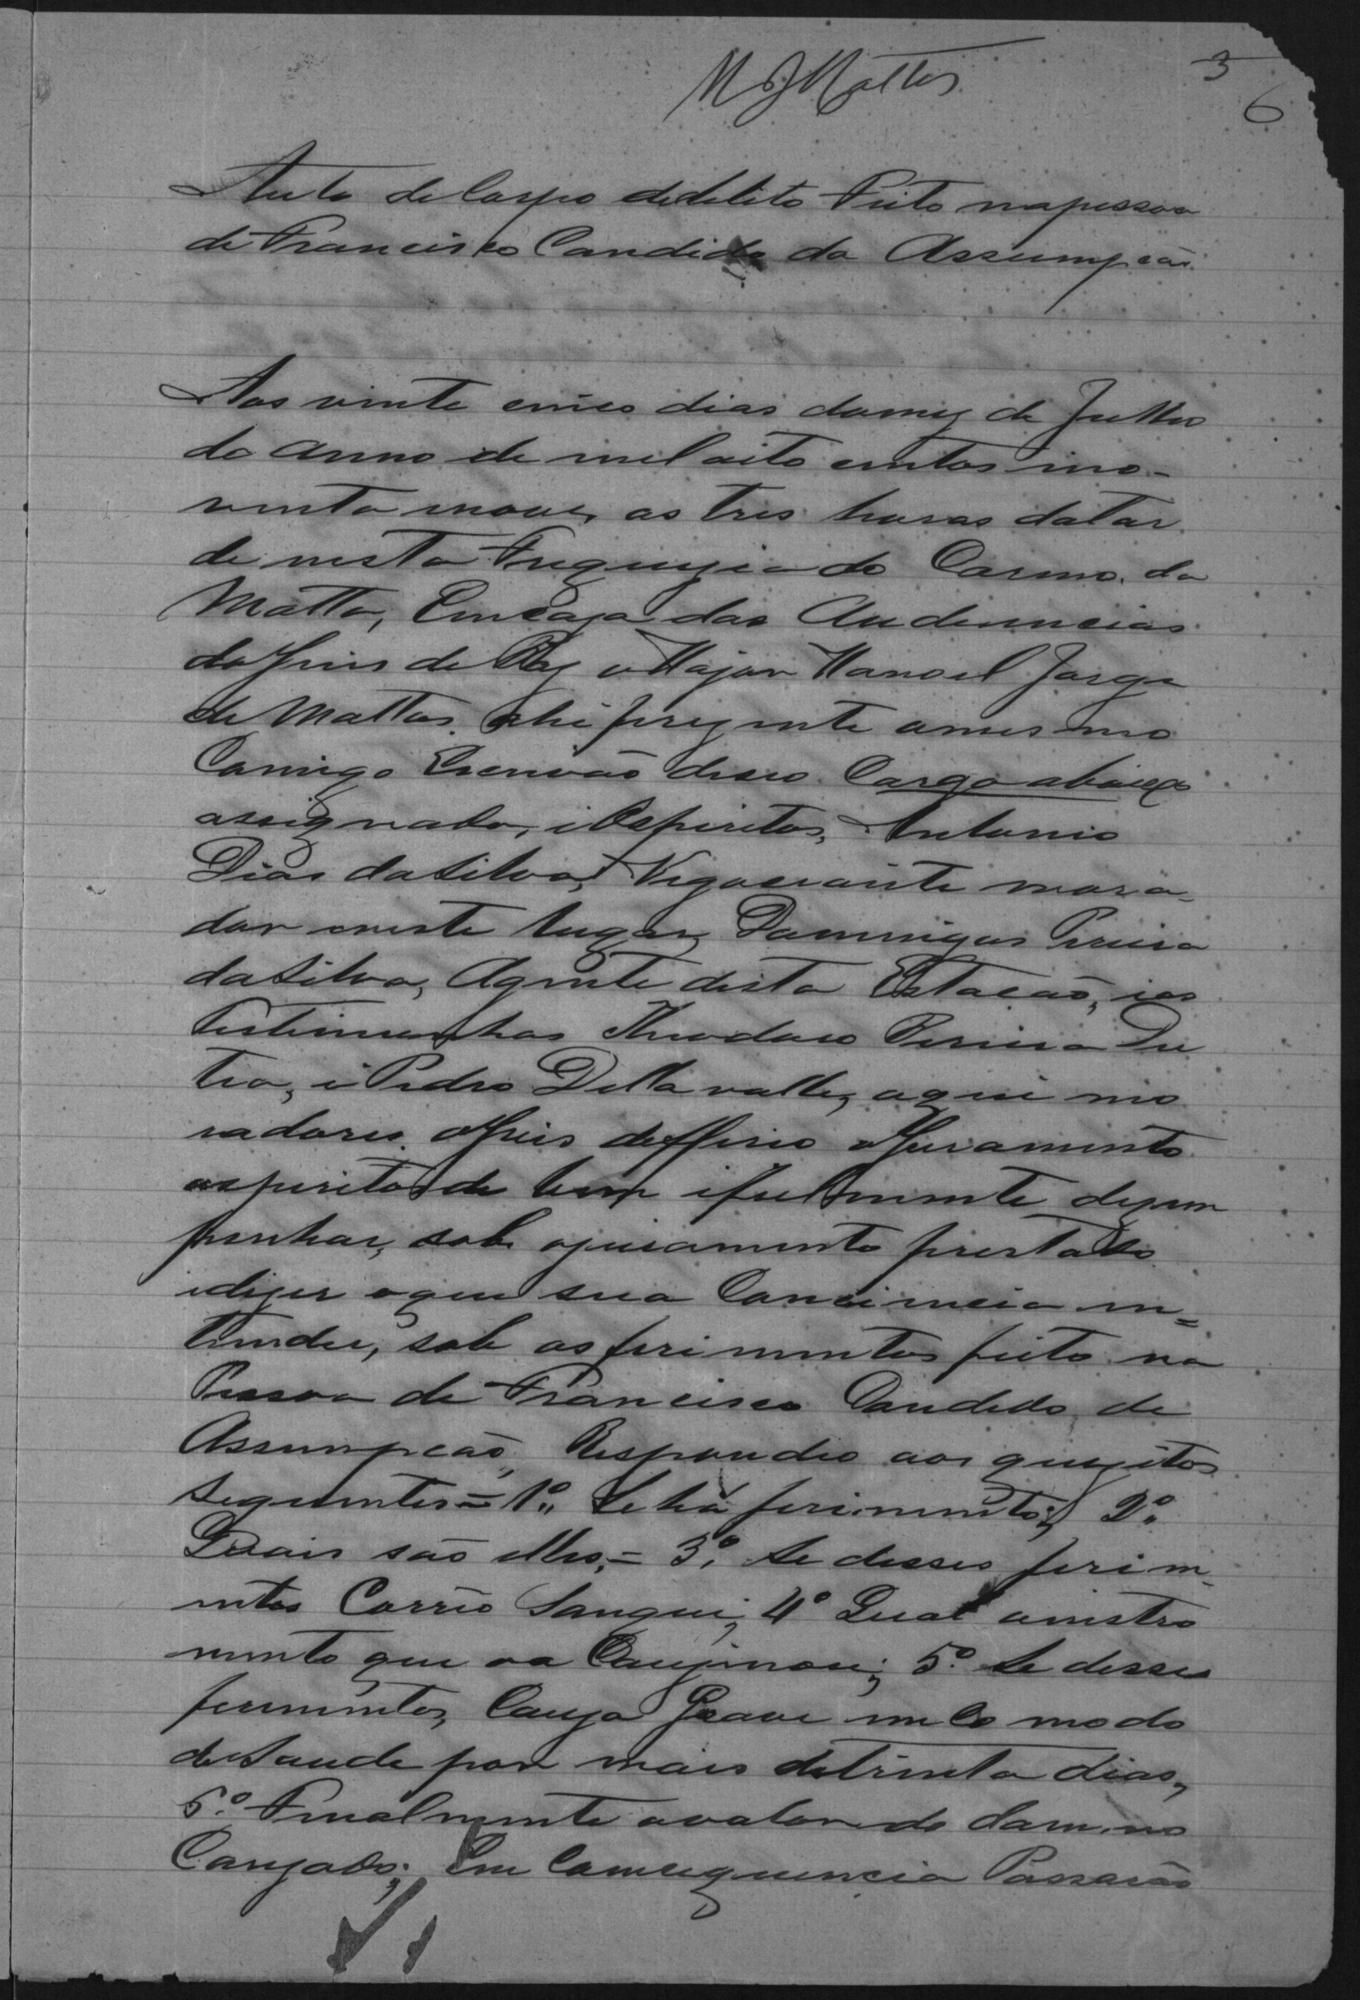 M J Mattos
3
6
Auto de Corpo dedelito Feito napessoa
de Francisco Candido da Assumpcão
Aos vinte cinco dias domez de Julho
do anno de mil oito centos no-
venta nove, as tres horas datar
de nesta Freguezia do Carmo da
Matta, Emcaza das Audiencias
do Juis de Paz o Major Manoel Jorge
de Mattos. ahi prezente omesmo
Comigo Escrivão deseo Cargo abaixo
assignado, i os peritos, Antonio
Dias daSilva, Negociante mora-
dor neste lugar, Domingos Pereira
daSilva, Agente desta Estacão, ias
Testimunhas Theodoro Pereira Du
tra, i Pedro Dellavalle, aqui mo
radores. oJuis deffirio oJuramento
aosperitos de bem ifielmente dezem
penhar, sob ojuramento prestado
idizer oque sua Conciencia in=
tender, sob os ferimentos feito na
Pessoa de Francisco Candido de
Assumpcão, Respondeo aos quezitos
Seguintes = 1º Se há ferimento; 2º
Quais são elles, = 3º, Se desses ferim-
entos Corrêo Sangue; 4º Qual oinstro
mento que os Cauzinou; 5º Se desses
ferimentos, Cauza Grave incomodo
deSaude por mais detrinta dias,
6º Finalmente ovalor do damno
Cauzado; Em Comsequencia Passarão